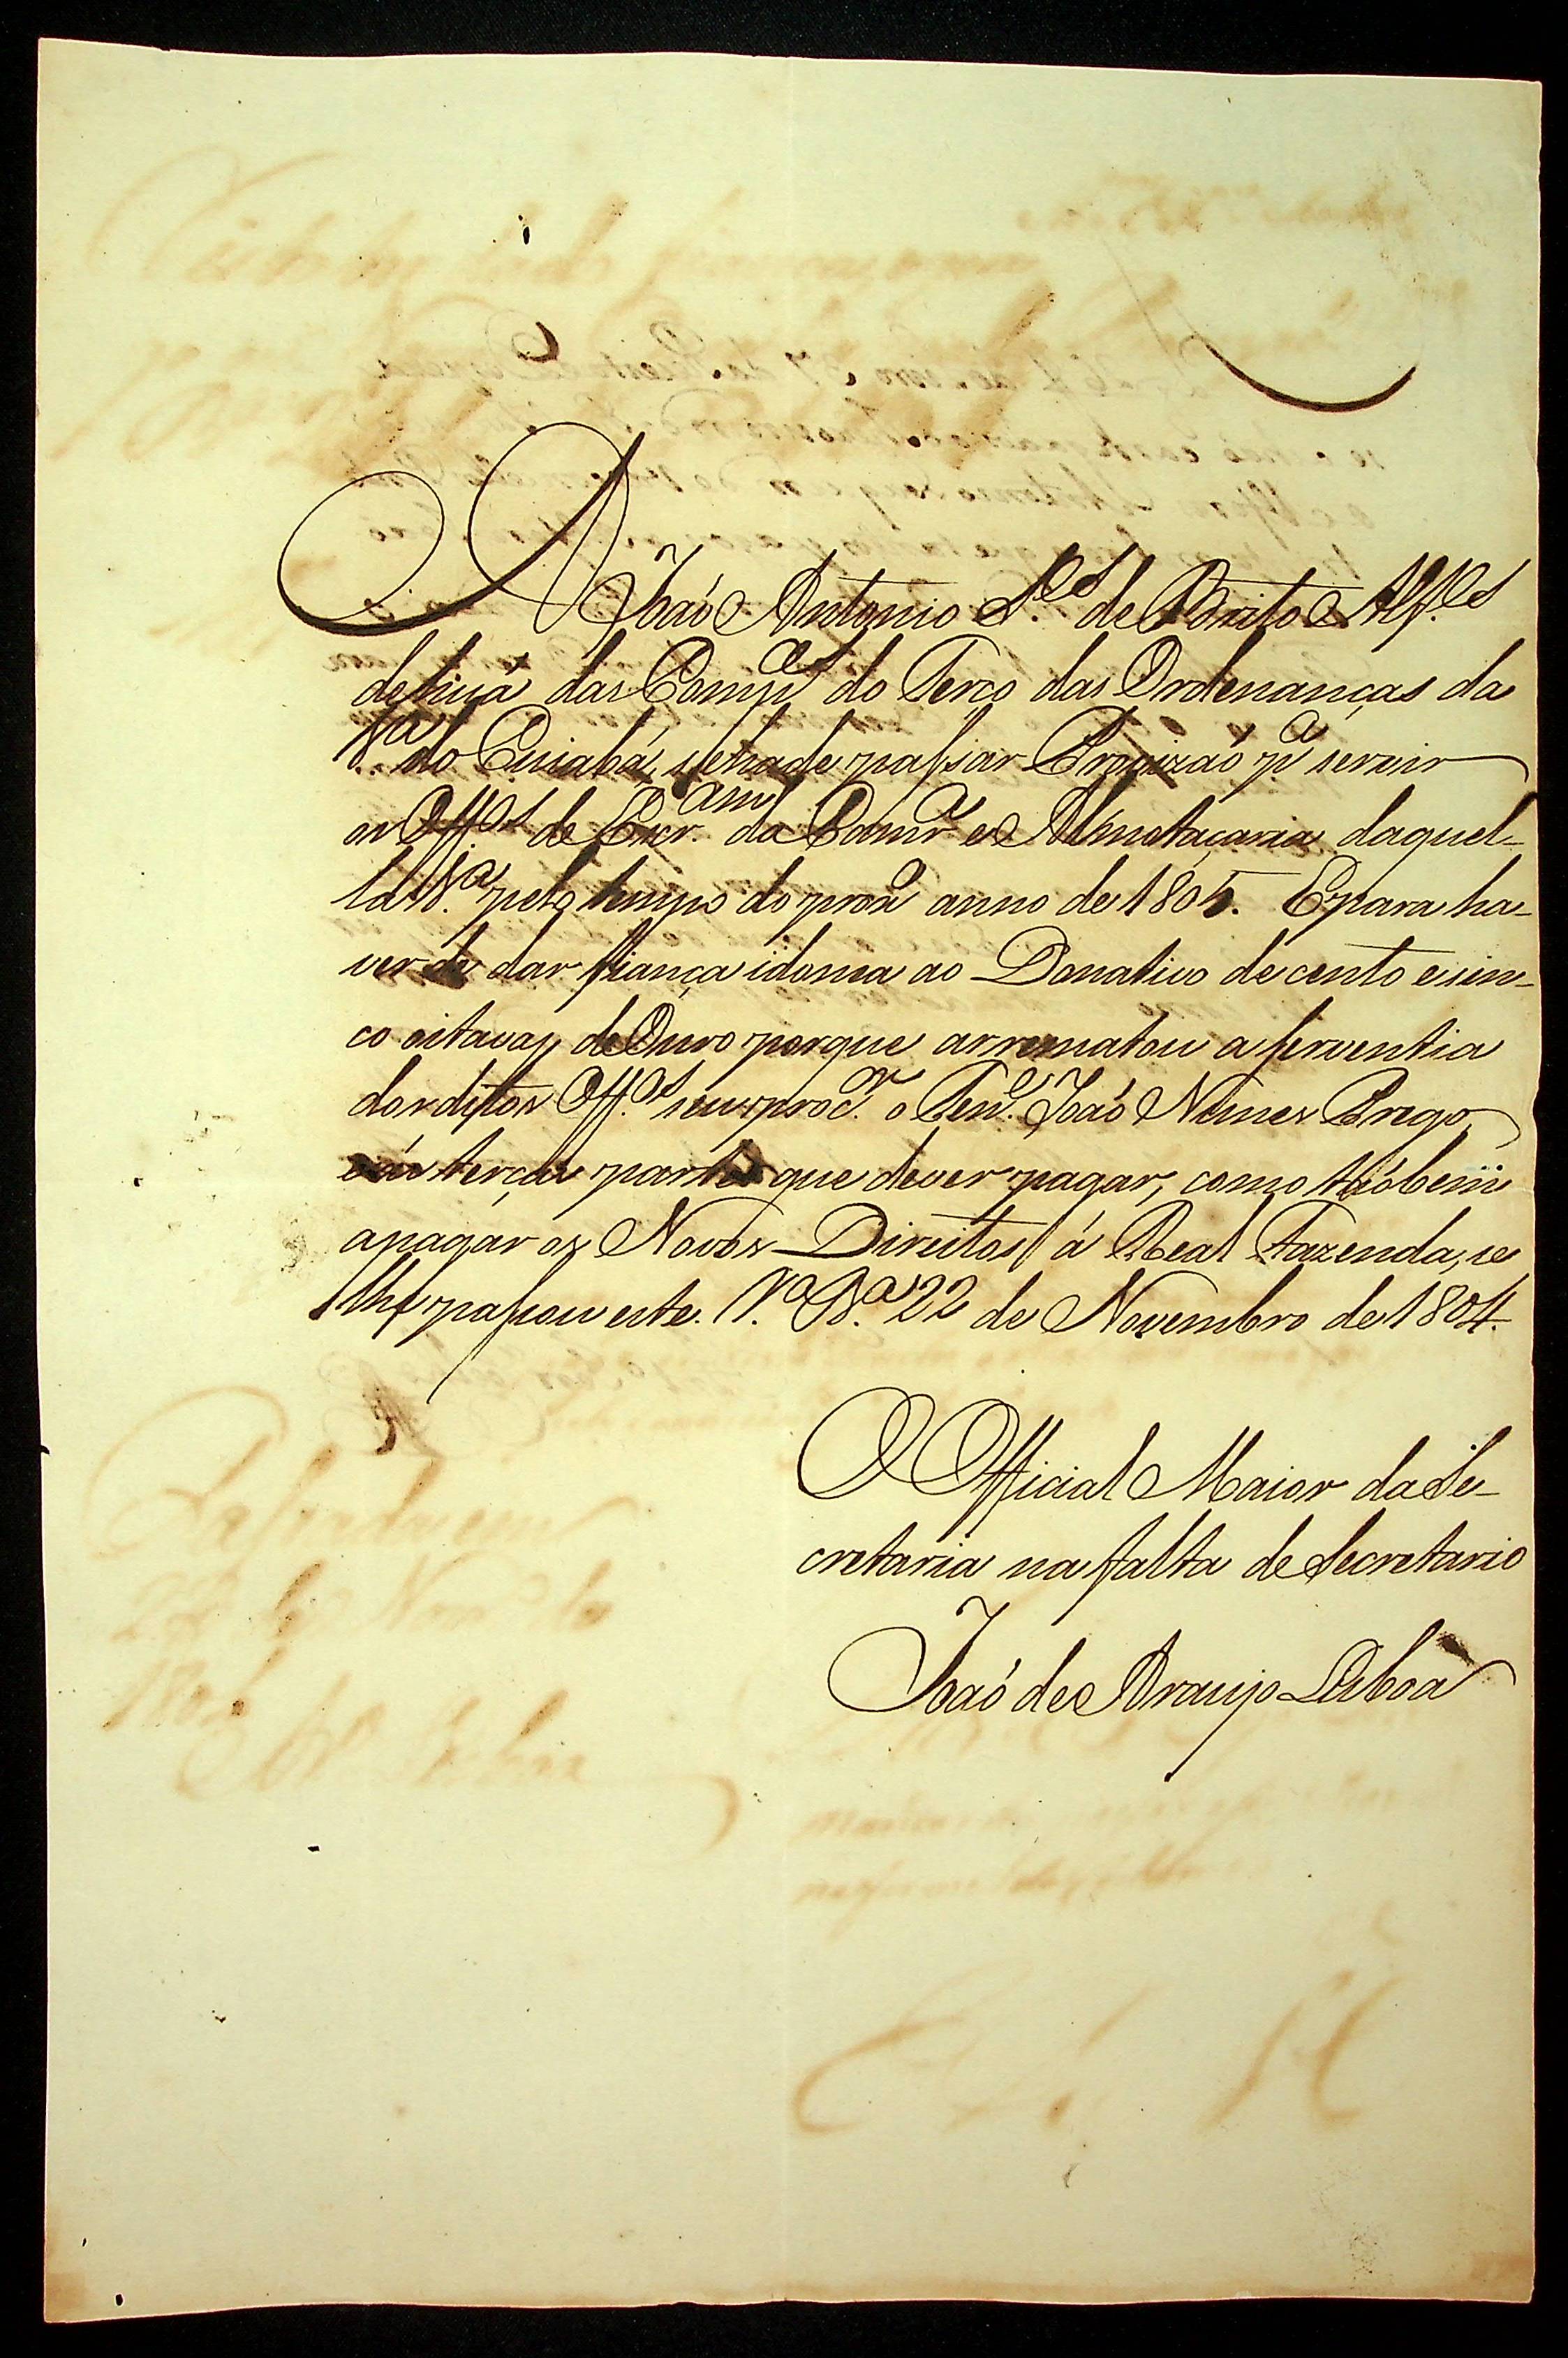 A João Antonio S.es de Brito Alf.es
de hũa das Comp.es do Terço das Ordenanças da
V.a do Cuiabá, se ha de passar Provizaõ p.a servir
os Off.os de Escr.am da Camr.a e Almotaçaria daquel-
la V.a pelo tempo do prox.o anno de 1805. E para ha-
ver de dar fiança idonea ao Donativo de cento e sin-
co oitavas de Ouro porque arrematou a serventia
dos ditos Off.os seu proc.or o Ten.e João Nunes Prego,
e ás terças partes que dever pagar, como taõbem
a pagar os Novos Direitos á Real Fazenda, se
lhe passou este. V.a B.a 22 de Novembro de 1804.
O Official Maior da Se-
cretaria na falta de Secretario
Joaõ de Araujo Lisboa